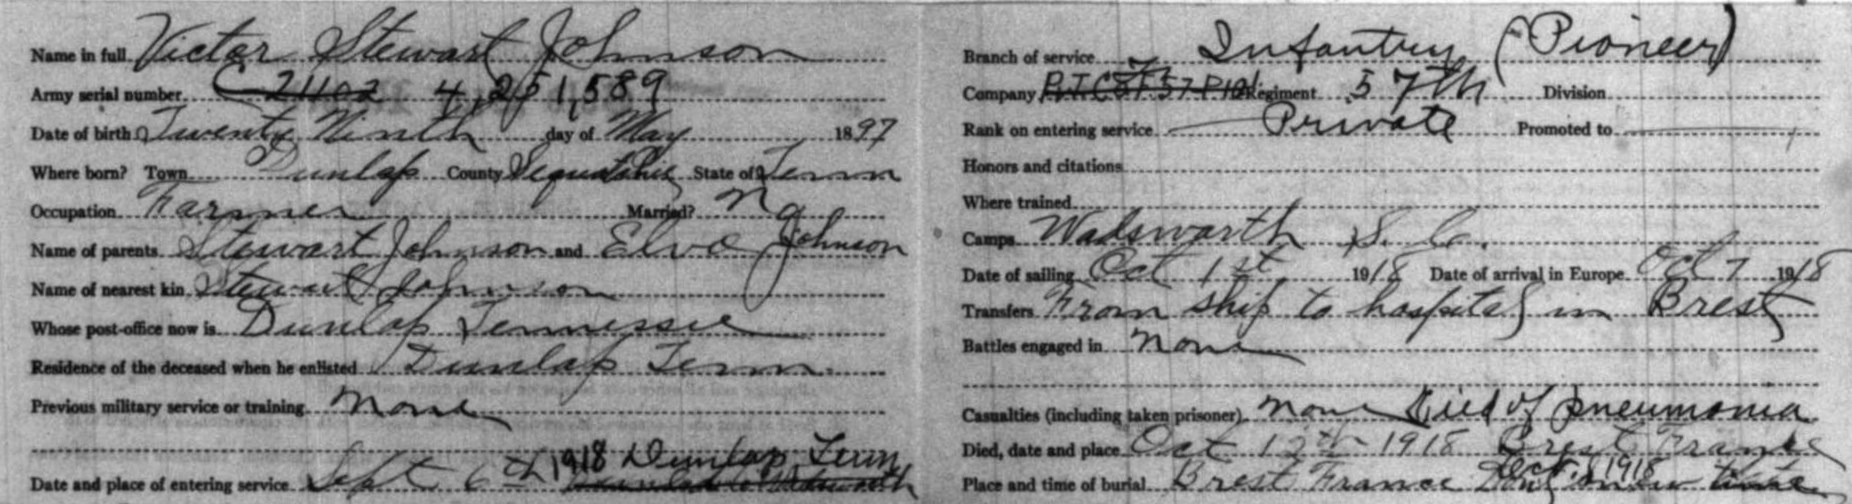 Name in full Victor Stewart Johnson
Army serial number C 2402 4,251,589
Date of birth Twenty Ninth day of May 1897
Where born? Town Dunlap County Sequatchie State of Tenn
Occupation Farmer Married? No
Name of parents Stewart Johnson and Elva Johnson
Name of nearest kin Stewart Johnson
Whose post-office now is Dunlap Tennessee
Residence of the deceased when he enlisted Dunlap Tenn.
Previous military service or training None
Date and place of entering service Sept 6th 1918 Dunlap Tenn
Branch of service Infantry (Pioneer)
Company Regiment 57th Division
Rank on entering service Private Promoted to
Honors and citations
Where trained
Camps Wadsworth S. C.
Date of sailing Oct 1st 1918 Date of arrival in Europe Oct 7 1918
Transfers From ship to hospital in Brest
Battles engaged in None
Casualties (including taken prisoner) None Died of pneumonia
Died, date and place Oct 12th 1918 Brest France
Place and time of burial Brest France Oct 1918 Dont know time